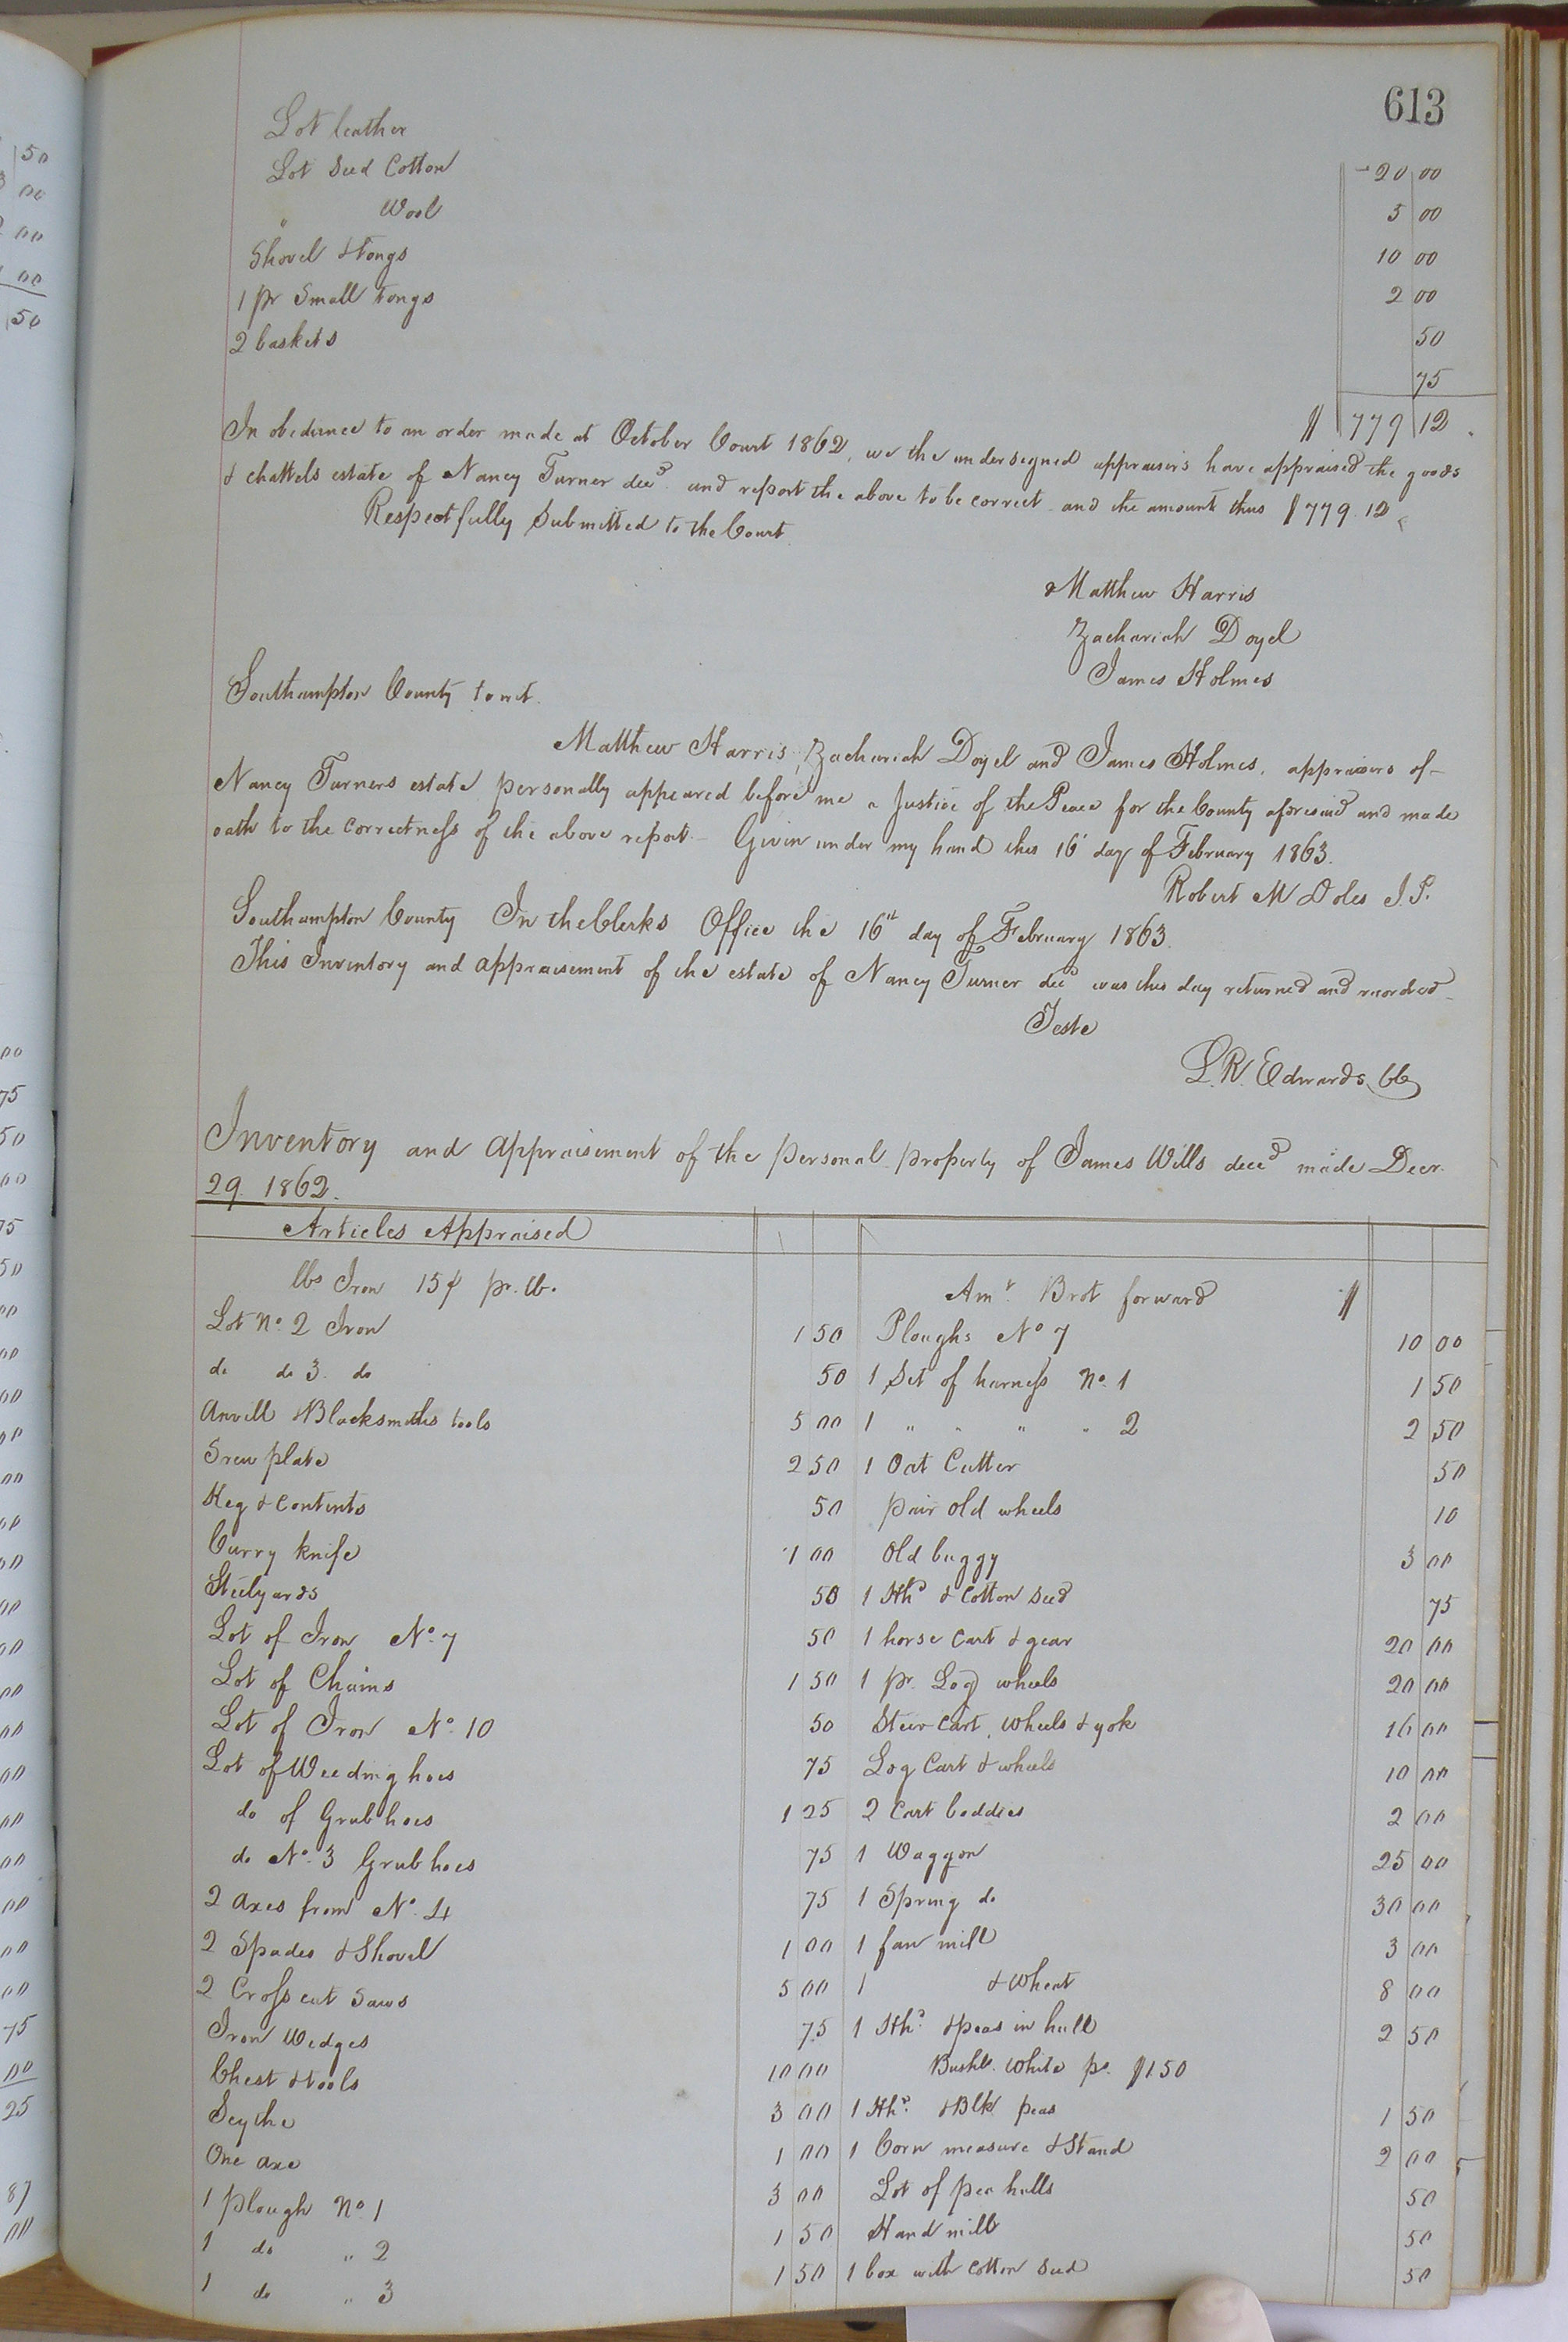 613
Lot leather 20 00
Lot Seed Cotton 5 00
" Wool 10 00
Shovel & Tongs 2 00
1 pr Small Tongs 50
2 baskets 75
$ 779 12
In obedience to an order made at October Court 1862, we the undersigned appraisers have appraised the goods
& chattels estate of Nancy Turner decd and report the above to be correct and the amount thus $779.12
Respectfully Submitted to the Court
Matthew Harris
Zachariah Doyel
James Holmes
Southampton County to wit.
Matthew Harris, Zachariah Doyel and James Holmes, appraisers of
Nancy Turners estate personally appeared before me a Justice of the Peace for the County aforesaid and made
oath to the correctness of the above report. Given under my hand this 16 day of February 1863.
Robert M Doles J.P.
Southampton County In the Clerks Office the 16th day of February 1863.
This Inventory and appraisement of the estate of Nancy Turner decd was this day returned and recorded
Teste
L.R. Edwards CC
Inventory and appraisement of the personal property of James Wills decd made Decr.
29 1862.
Articles Appraised
lbs Iron 15¢ pr. lb. Amt. Brot forward $
Lot No. 2 Iron 1 50 Ploughs No 7 10 00
do do 3. do 50 1 Set of harness No. 1 1 50
Anvill & Blacksmiths tools 5 00 1 " " " " 2 2 50
Srew plate 2 50 1 Oat Cutter 50
Keg & Contents 50 pair old wheels 10
Curry knife 1 00 Old buggy 3 00
Steelyards 50 1 Hhd & Cotton Seed 75
Lot of Iron No. 7 50 1 horse Cart & gear 20 00
Lot of Chains 1 50 1 pr. Log wheels 20 00
Lot of Iron No. 10 50 Steer Cart, Wheels & yok 16 00
Lot of Weeding hoes 75 Log Cart & wheels 10 00
do of Grub hoes 1 25 2 Cart boddies 2 00
do No. 3 Grub hoes 75 1 Waggon 25 00
2 Axes from No. 4 75 1 Spring do 30 00
2 Spades & Shovel 1 00 1 fan mill 3 00
2 Cross cut Saws 5 00 1 & Wheat 8 00
Iron Wedges 75 1 Hhd. & peas in hull 2 50
Chest & tools 10 00 Bushls. White ps. $1.50
Scythe 3 00 1 Hhd. & Blk peas 1 50
One axe 1 00 1 Corn measure & Stand 2 00
1 plough No 1 3 00 Lot of pea hulls 50
1 do " 2 1 50 Hand mill 50
1 do " 3 1 50 1 box with cotton Seed 50